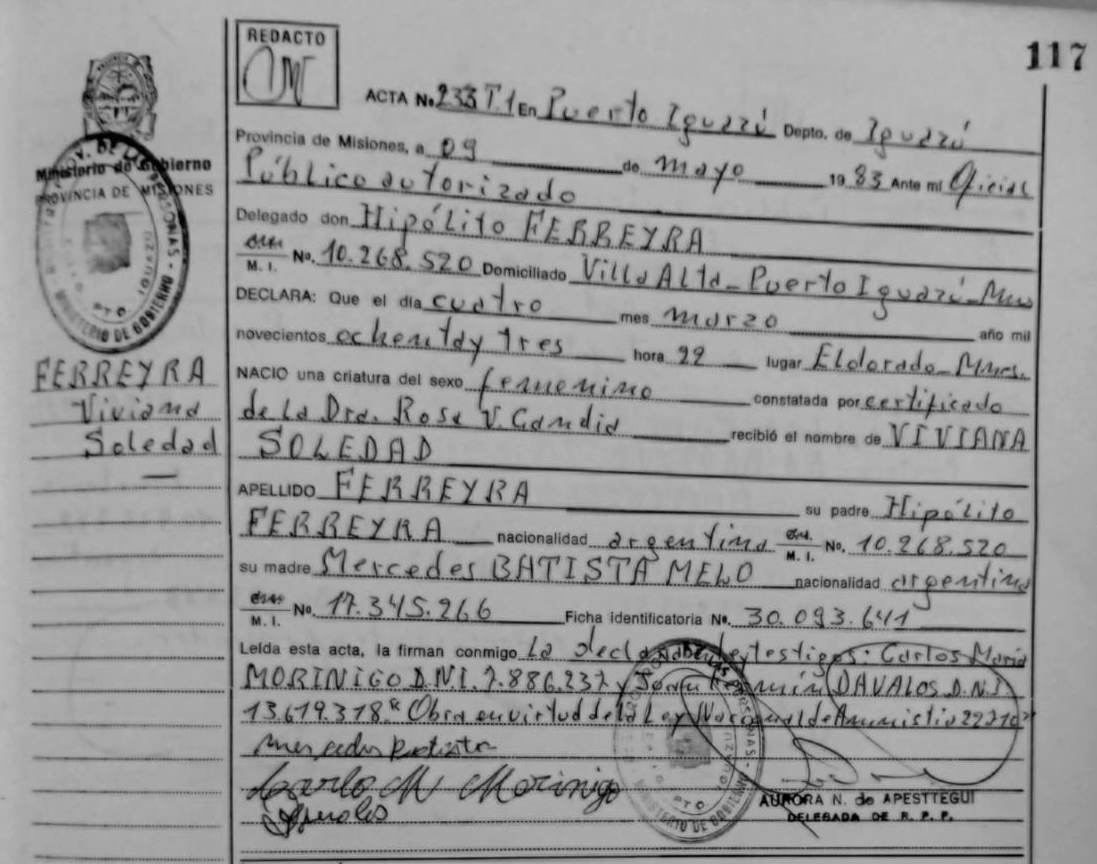 117
REDACTO
ACTA No. 233 T.1 En Puerto Iguazú Depto. de Iguazú
Provincia de Misiones, a 09 de mayo 19 83 Ante mí Oficial
Público autorizado
Delegado don Hipólito FERREYRA
M. I. No. 10.268.520 Domiciliado Villa Alta - Puerto Iguazú - Mnes
DECLARA: Que el día cuatro mes marzo año mil
novecientos ochenta y tres hora 22 lugar Eldorado - Mnes.
NACIO una criatura del sexo femenino constatada por certificado
de la Dra. Rosa V. Candia recibió el nombre de VIVIANA
SOLEDAD
APELLIDO FERREYRA su padre Hipólito
FERREYRA nacionalidad argentina M. I. No. 10.268.520
su madre Mercedes BATISTA MELO nacionalidad argentina
M. I. No. 17.345.266 Ficha identificatoria No. 30.093.641
Leída esta acta, la firman conmigo La testigos: Carlos María
MORINIGO D.N.I. 7.886.237 y DAVALOS D.N.I.
13.619.318 Obra en virtud de la Ley Nacional de Amnistia
Mercedes Batista
Carlo M Morinigo
AURORA N. de APESTTEGUI
DELEGADA DE R. P. P.
Ministerio de Gobierno
PROVINCIA DE MISIONES
MINISTERIO DE GOBIERNO
FERREYRA
Viviana
Soledad